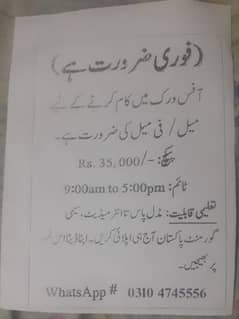 (فوری ضرورت ہے)
آفس ورک میں کام کرنے کے لیے
میل / فی میل کی ضرورت ہے۔
پیکج: Rs. 35,000/-
ٹائم: 9:00am to 5:00pm
تعلیمی قابلیت: مڈل پاس تا انٹر میڈیٹ، سیمی
گورنمنٹ پاکستان آج ہی اپلائی کریں۔ اپنا ڈیٹا اس نمبر
پر بھیجیں۔
WhatsApp # 0310 4745556